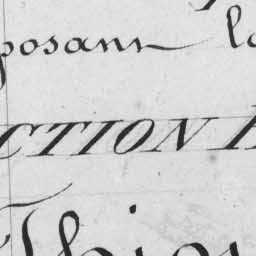 posant la
CTION
Thio